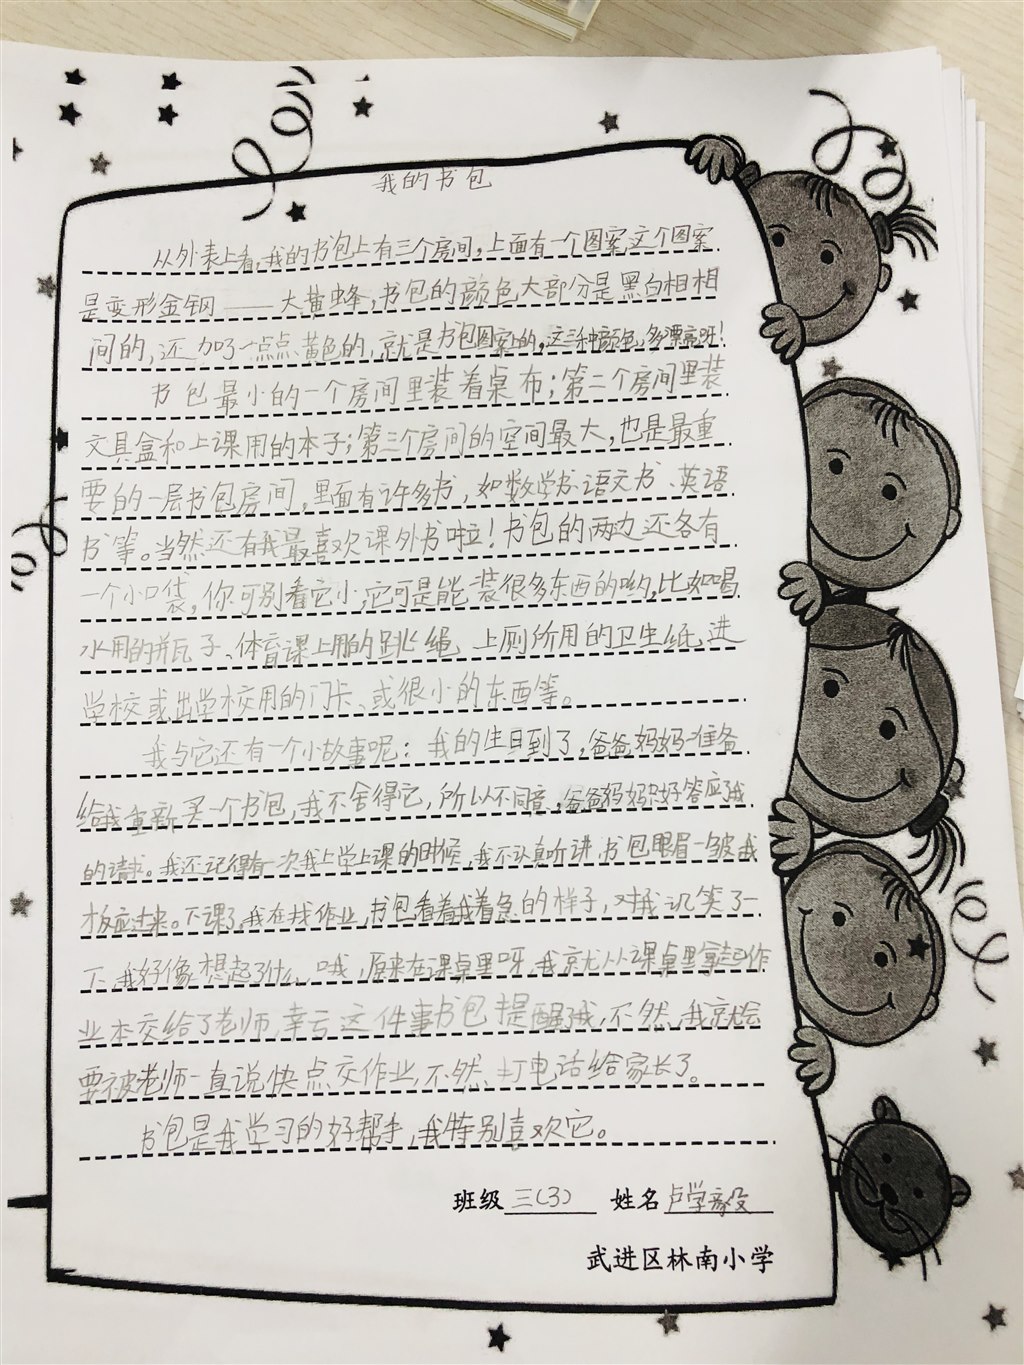 我的书包
从外表上看,我的书包上有三个房间,上面有一个图案,这个图案
是变形金钢——大黄蜂,书包的颜色大部分是黑白相相
间的,还加了一点点黄色的,就是书包图案上的,这三种颜色,多漂亮呀!
书包最小的一个房间里装着桌布;第二个房间里装
文具盒和上课用的本子;第三个房间的空间最大,也是最重
要的一层书包房间,里面有许多书,如数学书、语文书、英语
书等。当然还有我最喜欢课外书啦!书包的两边还各有
一个小口袋,你可别看它小,它可是能装很多东西的哟,比如喝
水用的瓶子、体育课上用的跳绳、上厕所用的卫生纸、进
学校或出学校用的门卡、或很小的东西等。
我与它还有一个小故事呢:我的生日到了,爸爸妈妈准备
给我重新买一个书包,我不舍得它,所以不同意,爸爸妈妈只好答应了我
的请求。我还记得有一次我上学上课的时候,我不认真听讲,书包眼眉一皱,我
板应过来。下课了,我在找作业,书包看着我着急的样子,对我讥笑了一
下,我好像想起了什么,哦,原来在课桌里呀,我就从课桌里拿起作
业本交给了老师,幸亏这件事书包提醒了我,不然,我就会
要被老师一直说快点交作业,不然,打电话给家长了。
书包是我学习的好帮手,我特别喜欢它。
班级 三(3) 姓名 卢学毅
武进区林南小学